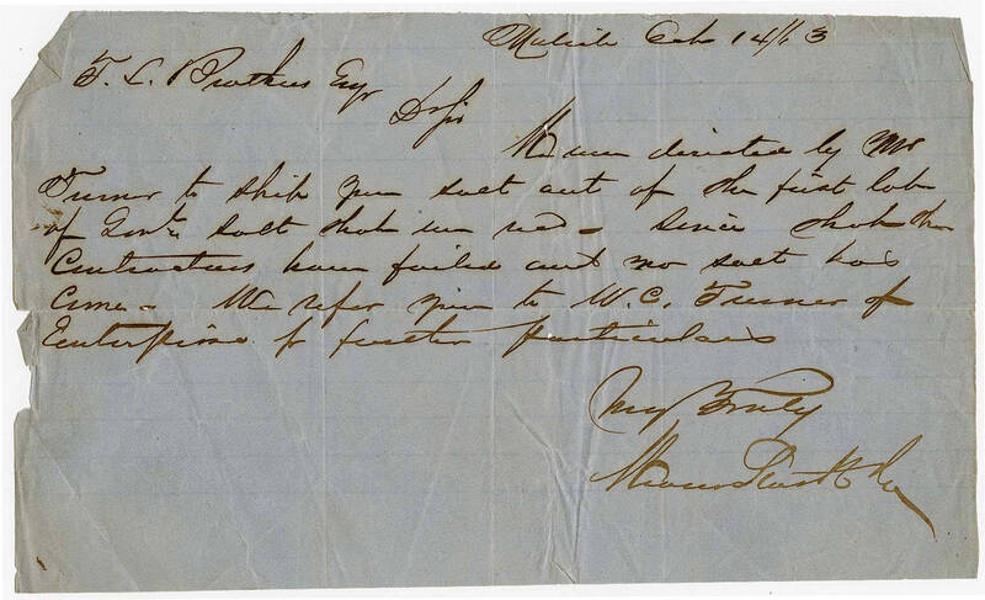 Mobile Oct 14/63
T. L. Brothers Esqr
D Sir
We were directed by Mr
Turner to ship you salt out of the first lot
of Govt. salt that we recd - Since that the
Contractors have failed and no salt has
Come - We refer you to W. C. Turner of
Enterprise for further particulars
Very Truly
& Co